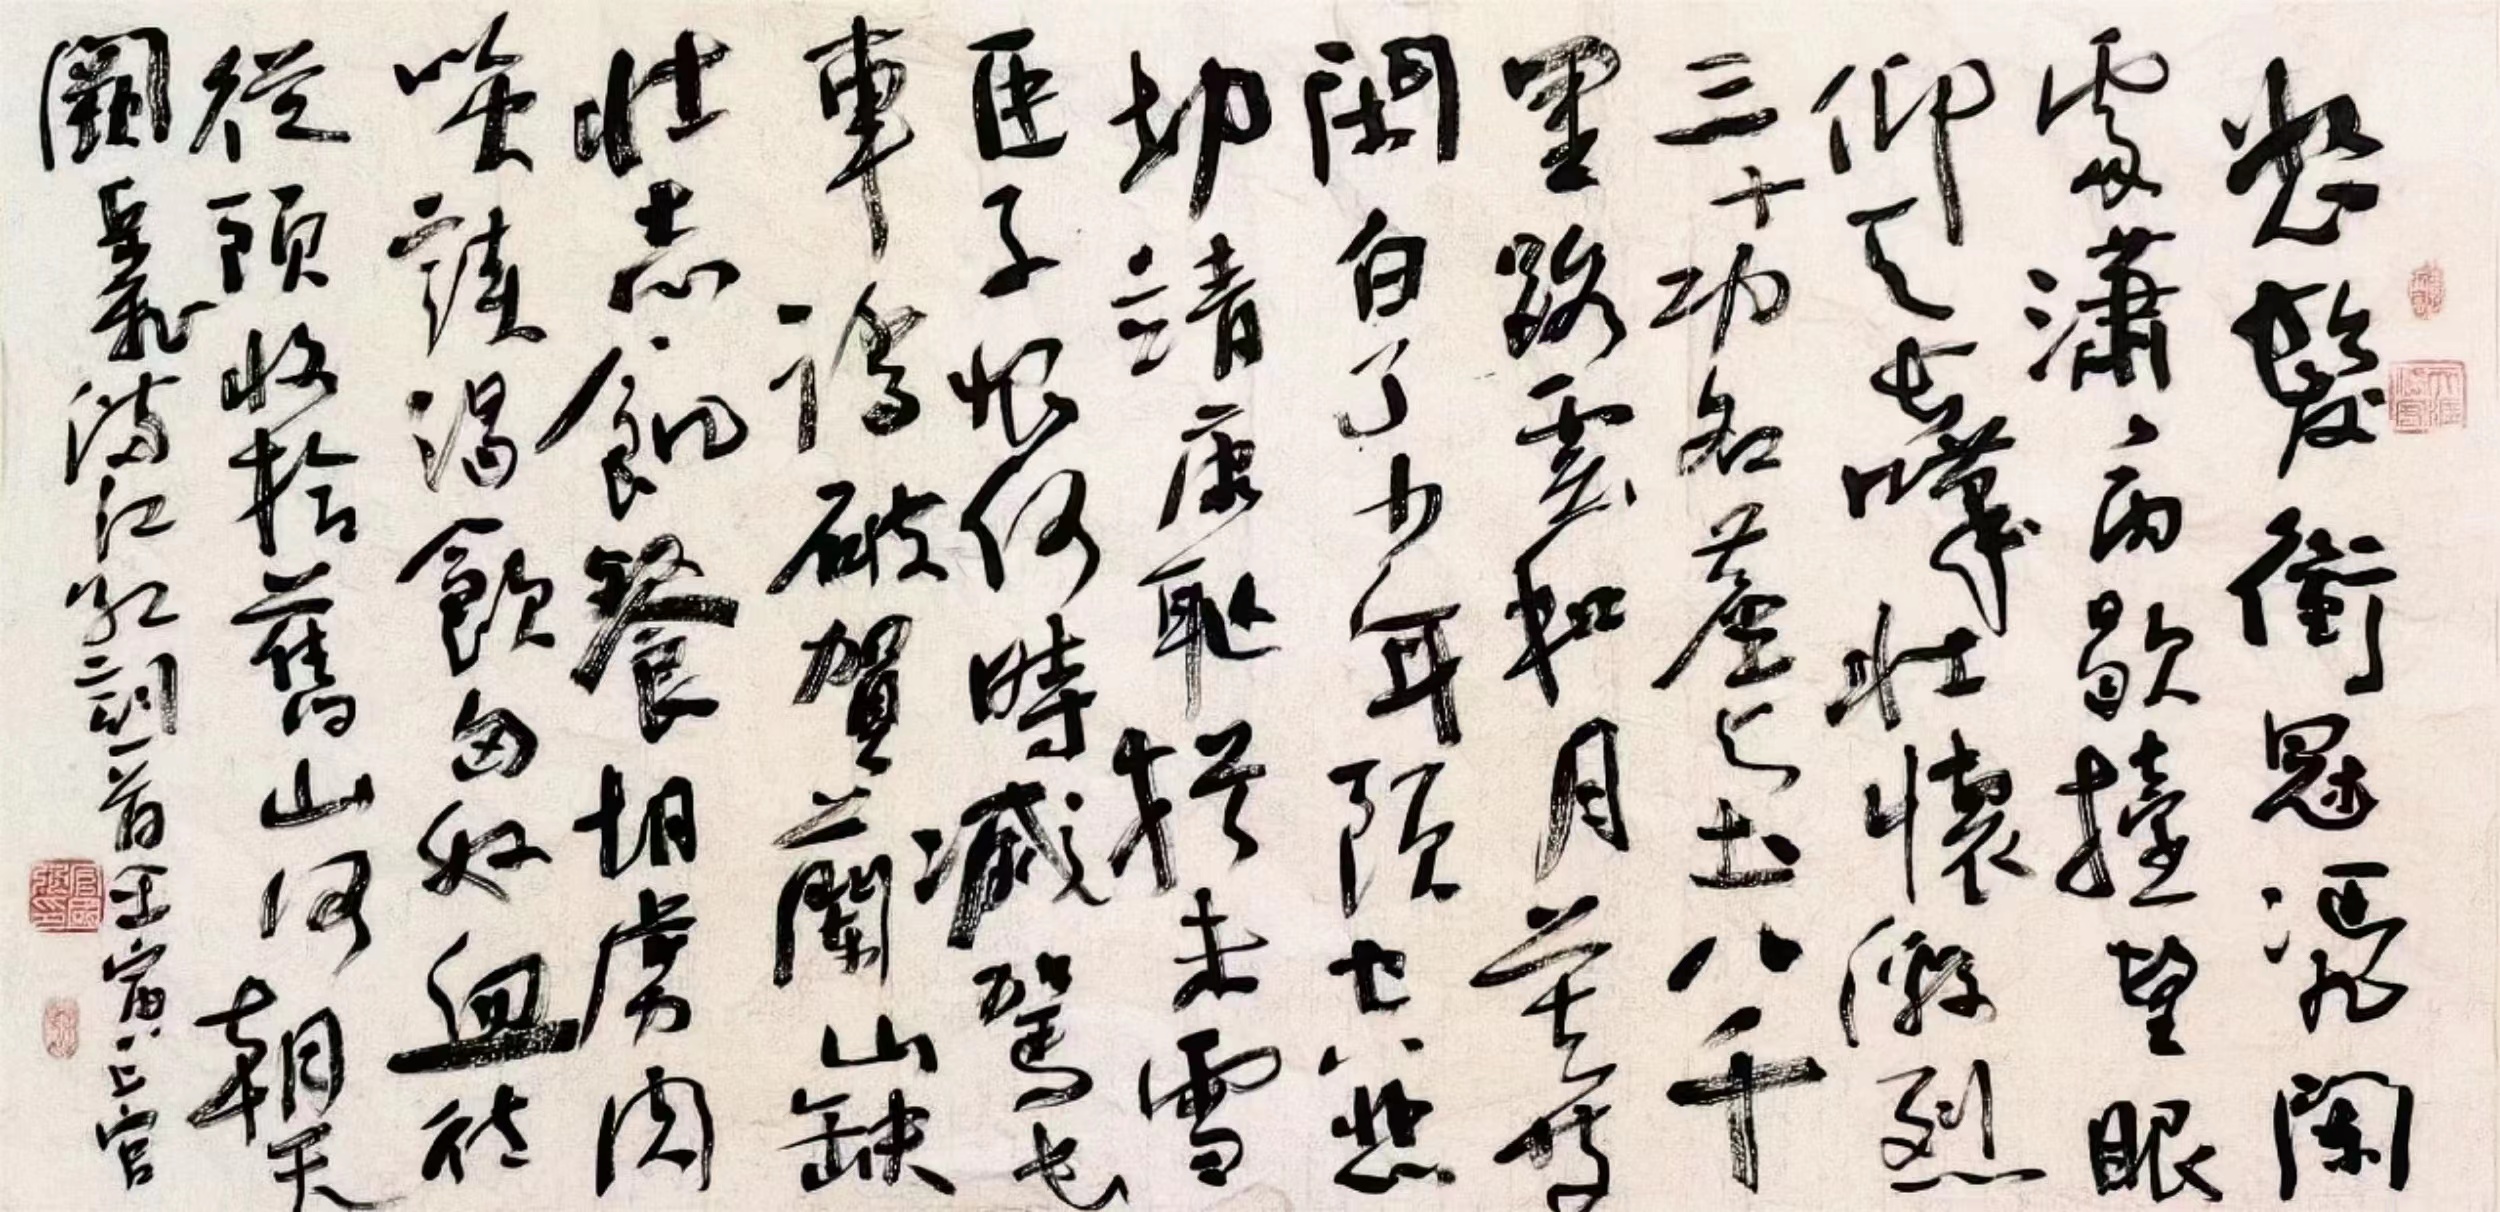 怒髮衝冠憑闌
處瀟々雨歇擡望眼
仰天長嘯壯懷激烈
三十功名塵与土八千
里路雲和月莫等
閑白了少年頭空悲
切靖康耻猶未雪
臣子恨何時滅駕長
車踏破賀蘭山缺
壯志飢餐胡虜肉
笑談渴飲匈奴血待
從頭收拾舊山河朝天
闕 岳飛滿江紅詞一首壬寅上官